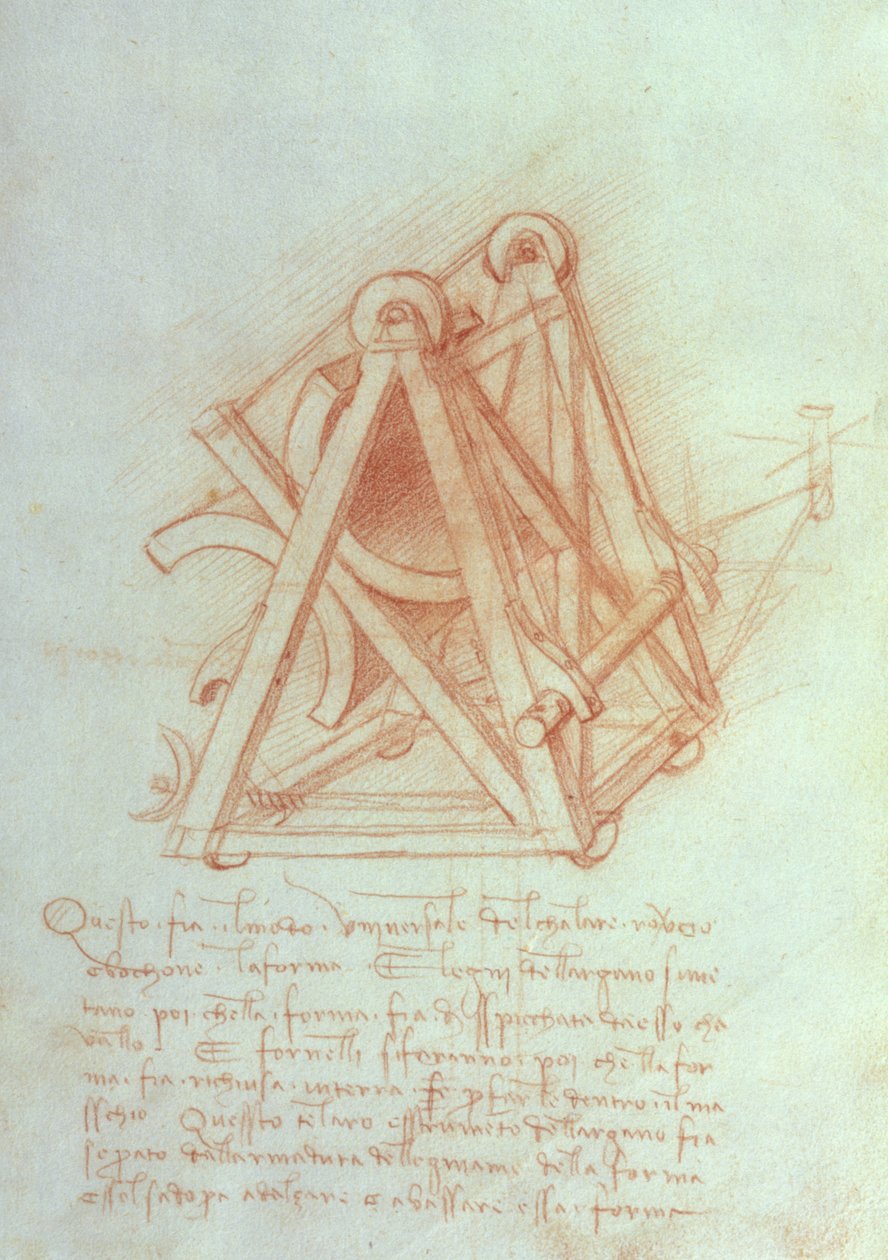 Questo · fia · ilmodo · vniversale · delchalare · roverscio
ebochone · laforma · E legni dellargano sime
tano poi chella · forma · fia · disspicchata daesso cha
vallo · E fornelli sifaranno · poi chella for
ma · fia · richiusa · interra · per farle dentro · il ma
sschio Quessto telaro esstrumēto dellargano fia
seprato dallarmadura dellegniame della forma
essolsadopa adalzare e abassare · essa · forma